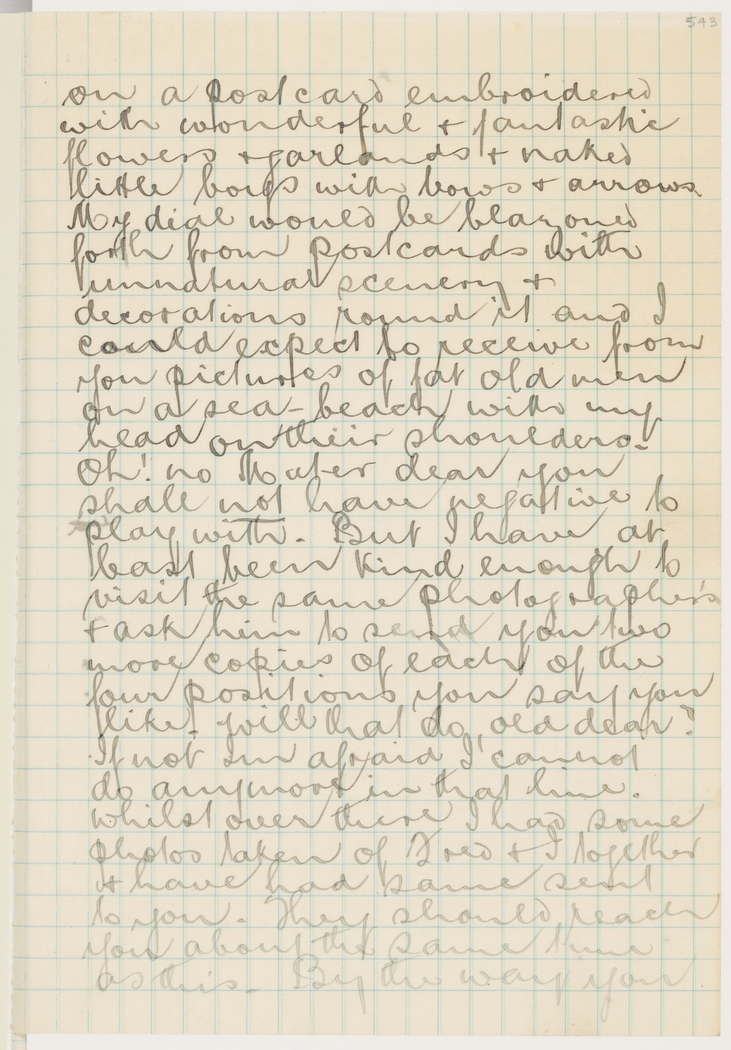 543
on a postcard embroidered
with wonderful + fantastic
flowers + garlands + naked
little boys with bows + arrows.
My dial would be blazoned
forth from postcards with
unnatural scenery +
decorations round it and I
could expect to receive from
you pictures of fat old men
on a sea-beach with my
head on their shoulders.
Oh! no Mater dear you
shall not have negative to
play with. But I have at
least been kind enough to
visit the same photographers
+ ask him to send you two
more copies of each of the
four positions you say you
like. Will that do, old dear?
If not Im afraid I cannot
do anymore in that line.
Whilst over there I had some
photos taken of Fred + I together
+ have had same sent
to you. They should reach
you about the same time
as this. By the way you